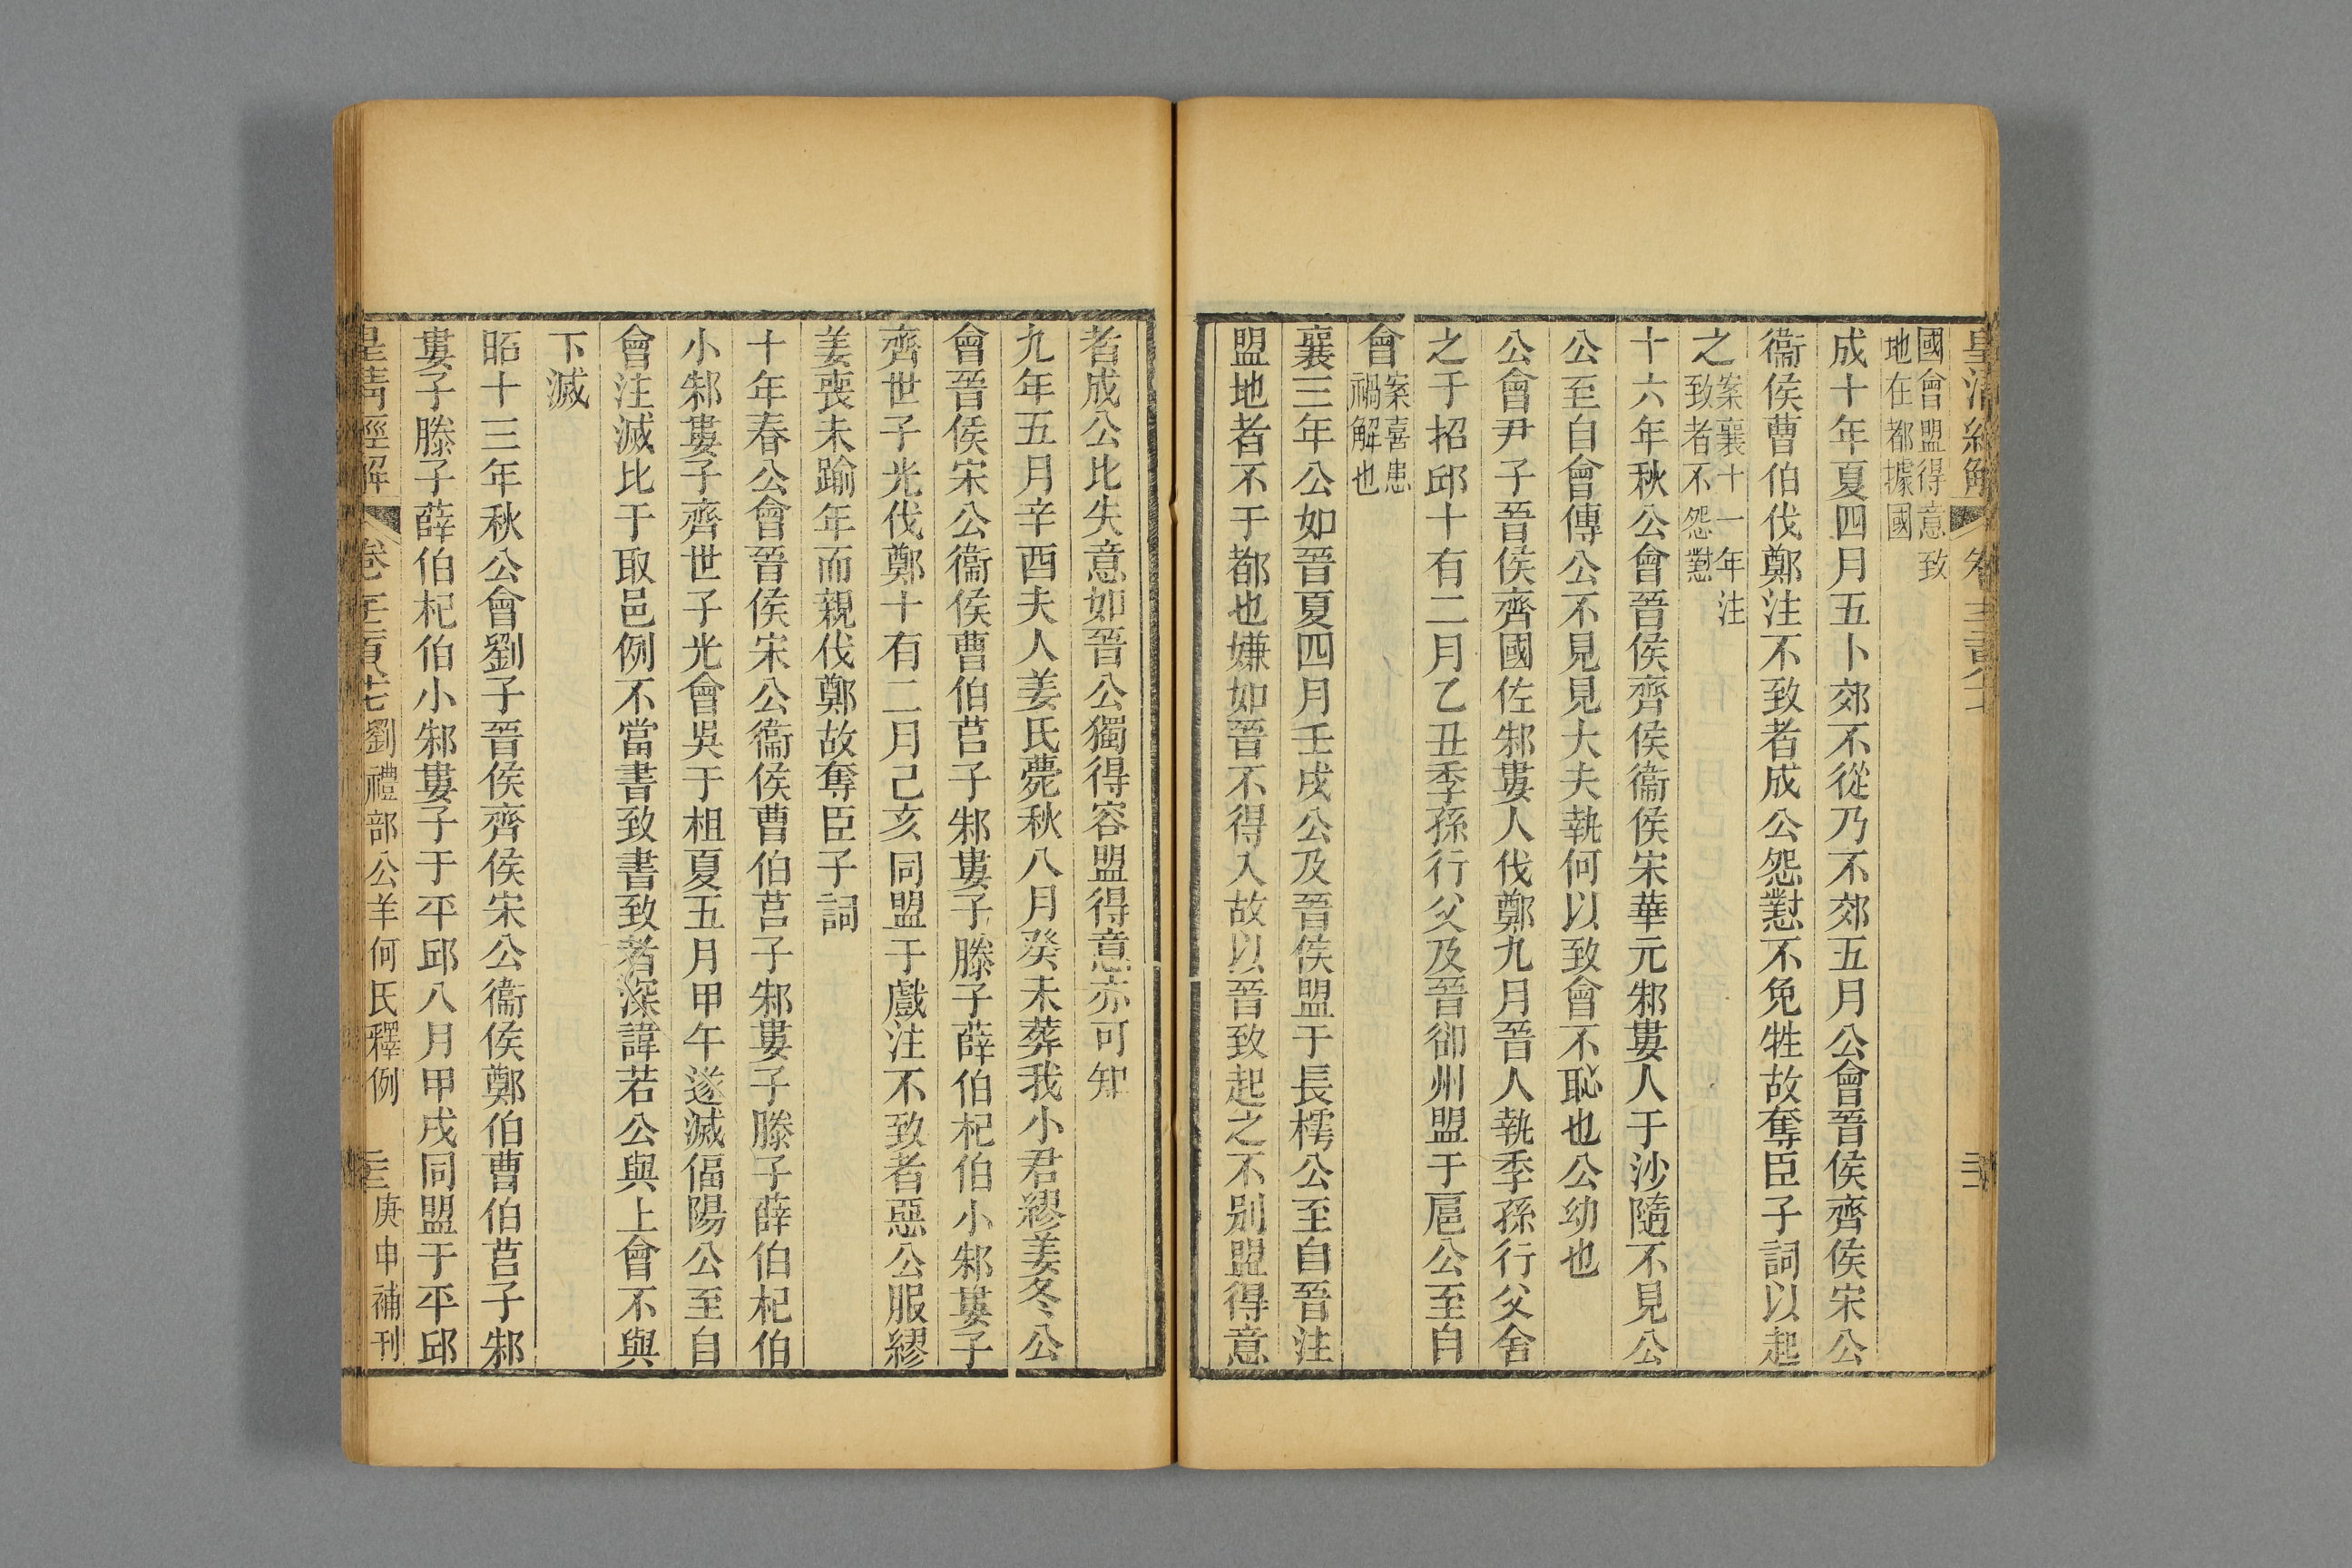 皇清經解
國會盟得意致
地在都據國
成十年夏四月五卜郊不從乃不郊五月公會晉侯齊侯宋公
衞侯曹伯伐鄭注不致者成公怨懟不免牲故奪臣子詞以起
之案襄十一年注
致者不怨懟
十六年秋公會晉侯齊侯衞侯宋華元邾婁人于沙隨不見公
公至自會傳公不見見大夫執何以致會不恥也公幼也
公會尹子晉侯齊國佐邾婁人伐鄭九月晉人執季孫行父舍
之于招邱十有二月乙丑季孫行父及晉卻州盟于扈公至自
會案喜患
禍解也
襄三年公如晉夏四月壬戌公及晉侯盟于長樗公至自晉注
盟地者不于都也嫌如晉不得入故以晉致起之不别盟得意
者成公比失意如晉公獨得容盟得意亦可知
九年五月辛酉夫人姜氏薨秋八月癸未葬我小君繆姜冬公
會晉侯宋公衞侯曹伯莒子邾婁子滕子薛伯杞伯小邾婁子
齊世子光伐鄭十有二月己亥同盟于戲注不致者惡公服繆
姜喪未踰年而親伐鄭故奪臣子詞
十年春公會晉侯宋公衞侯曹伯莒子邾婁子滕子薛伯杞伯
小邾婁子齊世子光會吳于柤夏五月甲午遂滅偪陽公至自
會注滅比于取邑例不當書致書致者深諱若公與上會不與
下滅
昭十三年秋公會劉子晉侯齊侯宋公衞侯鄭伯曹伯莒子邾
婁子滕子薛伯杞伯小邾婁子于平邱八月甲戌同盟于平邱
皇清經解 卷 劉禮部公羊何氏釋例 庚申補刊